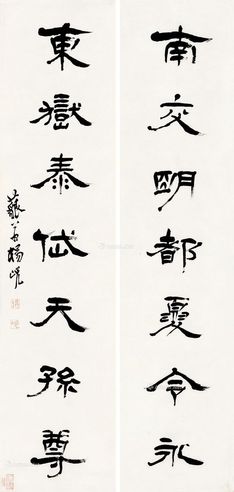 南交明都夏令永
東嶽泰岱天孫尊
藐翁楊峴